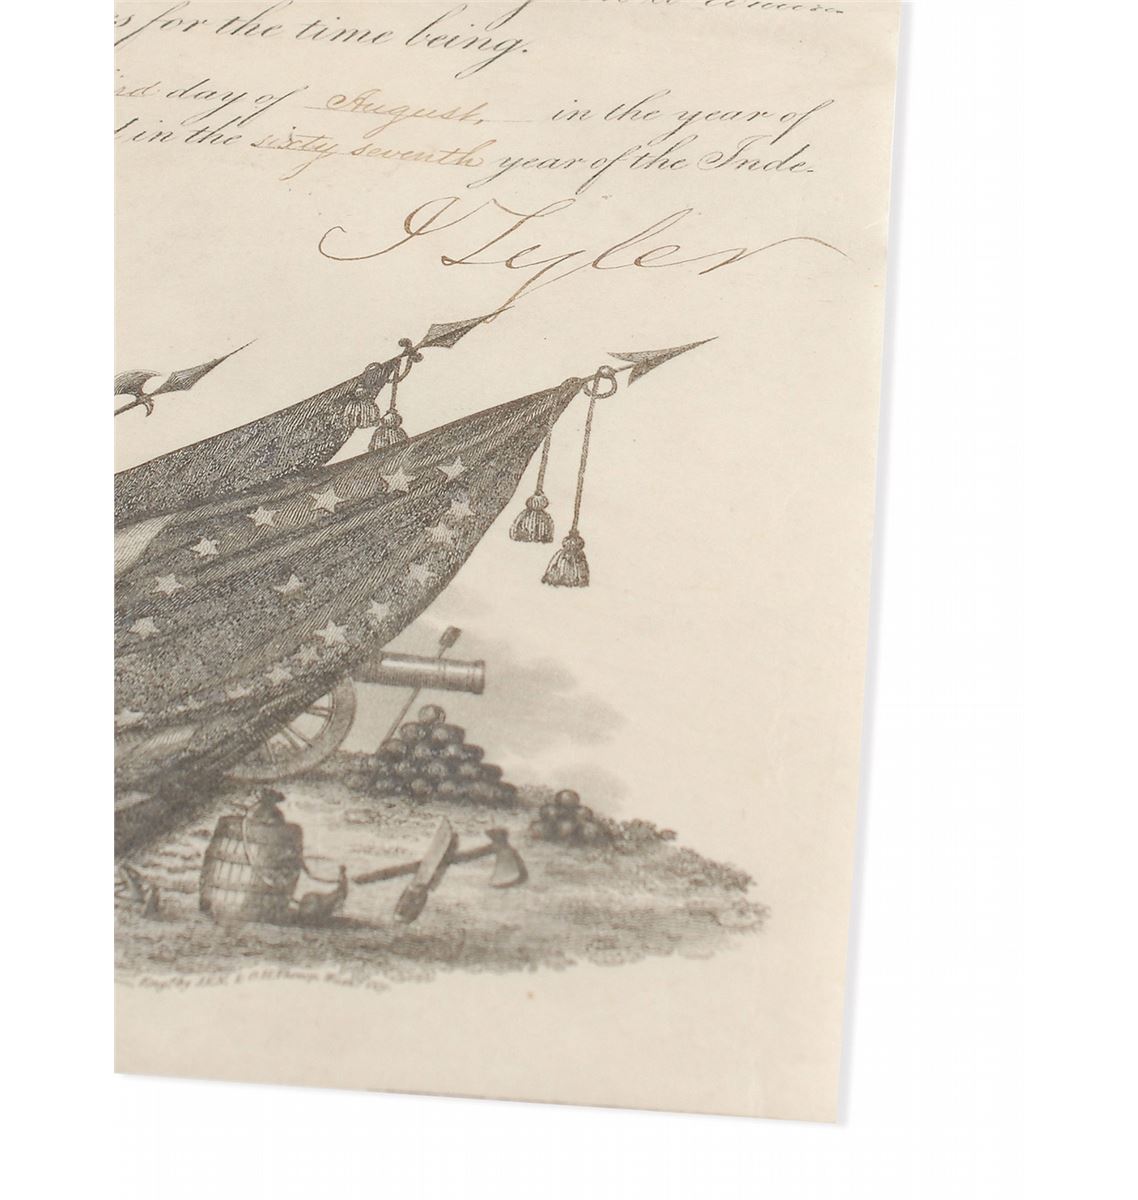 s for the time being.
rd day of August, in the year of
in the sixty seventh year of the Inde-
J Tyler
Engd. by